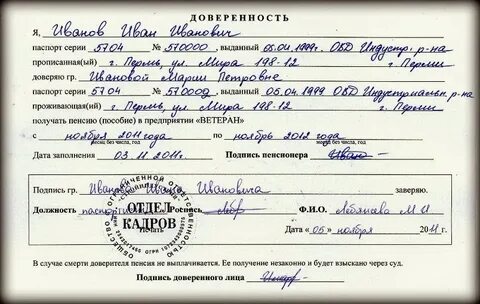 ДОВЕРЕННОСТЬ
Я, Иванов Иван Иванович
паспорт серии 5704 № 570000, выданный 05.04.1999г. ОВД Индустр. р-на
прописанный(ая) г. Пермь, ул. Мира 198-12 г Перми
доверяю гр. Ивановой Марии Петровне
паспорт серии 5704 № 570000, выданный 05.04.1999 ОВД Индустриальн. р-на
проживающий(ая) г. Пермь, ул. Мира 198-12 г Перми
получать пенсию (пособие) в предприятии «ВЕТЕРАН»
с ноября 2011 года по ноябрь 2012 года
месяц без числа, год месяц без числа, год
Дата заполнения 03.11.2011г. Подпись пенсионера
Подпись гр. Иванова Ивана Ивановича заверяю.
Должность Роспись Ф.И.О. М И
ОТДЕЛ КАДРОВ
Печать
Дата «05» ноября 2011 г.
В случае смерти доверителя пенсия не выплачивается. Ее получение незаконно и будет взыскано через суд.
Подпись доверенного лица